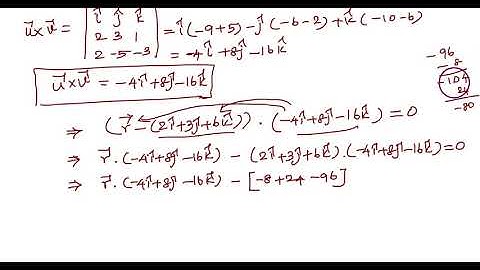 u⃗×v⃗ = | i⃗ j⃗ k⃗ | = i⃗(-9+5) - j⃗(-6-2) + k⃗(-10-6)
2 3 1
2 -5 -3 = -4i⃗+8j⃗-16k⃗
u⃗×v⃗ = -4i⃗+8j⃗-16k⃗
-96
-8
-104
24
-80
⇒ (r⃗-(2i⃗+3j⃗+6k⃗)).(-4i⃗+8j⃗-16k⃗)=0
⇒ r⃗.(-4i⃗+8j⃗-16k⃗) - (2i⃗+3j⃗+6k⃗).(-4i⃗+8j⃗-16k⃗)=0
⇒ r⃗.(-4i⃗+8j⃗-16k⃗) - [-8+24-96]